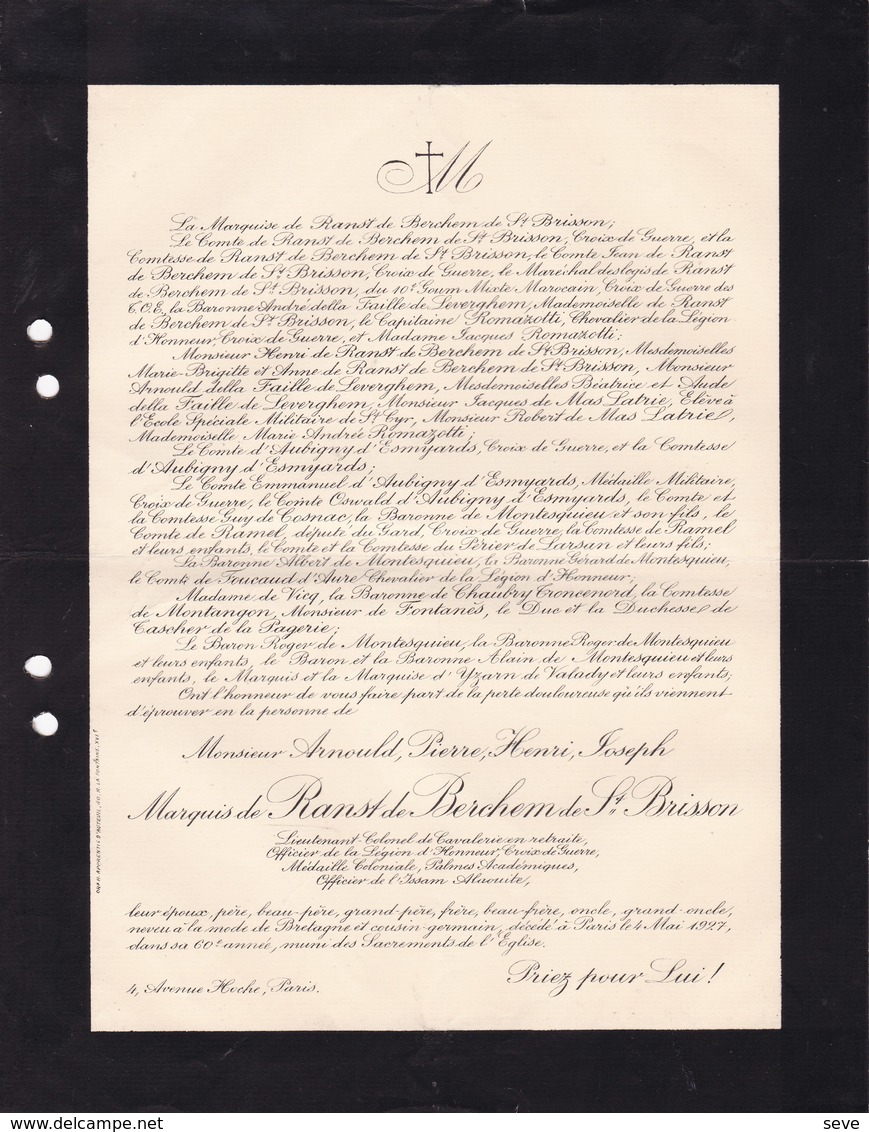 M
La Marquise de Ranst de Berchem de St Brisson;
Le Comte de Ranst de Berchem de St Brisson, Croix de Guerre, et la
Comtesse de Ranst de Berchem de St Brisson, le Comte Jean de Ranst
de Berchem de St Brisson, Croix de Guerre, le Maréchal des logis de Ranst
de Berchem de St Brisson, du 10e Goum Mixte Marocain, Croix de Guerre des
T.O.E, la Baronne André della Faille de Leverghem, Mademoiselle de Ranst
de Berchem de St Brisson, le Capitaine Romazotti, Chevalier de la Légion
d'Honneur, Croix de Guerre, et Madame Jacques Romazotti;
Monsieur Henri de Ranst de Berchem de St Brisson, Mesdemoiselles
Marie-Brigitte et Anne de Ranst de Berchem de St Brisson, Monsieur
Arnould della Faille de Leverghem, Mesdemoiselles Béatrice et Aude
della Faille de Leverghem, Monsieur Jacques de Mas Latrie, Elève à
l'Ecole Spéciale Militaire de St Cyr, Monsieur Robert de Mas Latrie,
Mademoiselle Marie André Romazotti;
Le Comte d'Aubigny d'Esmyards, Croix de Guerre, et la Comtesse
d'Aubigny d'Esmyards;
Le Comte Emmanuel d'Aubigny d'Esmyards, Médaille Militaire,
Croix de Guerre, le Comte Oswald d'Aubigny d'Esmyards, le Comte et
la Comtesse Guy de Cosnac, la Baronne de Montesquieu et son fils, le
Comte de Ramel, député du Gard, Croix de Guerre, la Comtesse de Ramel
et leurs enfants, le Comte et la Comtesse du Périer de Larsan et leurs fils;
La Baronne Albert de Montesquieu, la Baronne Gérard de Montesquieu,
le Comte de Foucaud d'Aure Chevalier de la Légion d'Honneur;
Madame de Vicq, la Baronne de Chaubry Troncenord, la Comtesse
de Montangon, Monsieur de Fontanès, le Duc et la Duchesse de
Tascher de la Pagerie;
Le Baron Roger de Montesquieu, la Baronne Roger de Montesquieu
et leurs enfants, le Baron et la Baronne Alain de Montesquieu et leurs
enfants, le Marquis et la Marquise d'Yzarn de Valady et leurs enfants;
Ont l'honneur de vous faire part de la perte douloureuse qu'ils viennent
d'éprouver en la personne de
Monsieur Arnould, Pierre, Henri, Joseph
Marquis de Ranst de Berchem de St Brisson
Lieutenant-Colonel de Cavalerie en retraite,
Officier de la Légion d'Honneur, Croix de Guerre,
Médaille Coloniale, Palmes Académiques,
Officier de l'Issam Alaouite,
leur époux, père, beau-père, grand-père, frère, beau-frère, oncle, grand-oncle,
neveu à la mode de Bretagne et cousin-germain, décédé à Paris le 4 Mai 1927,
dans sa 60e année, muni des Sacrements de l'Eglise.
Priez pour Lui!
4, Avenue Hoche, Paris.
D'AUTEUIL, 40, R. LA FONTAINE, XVIe
seve